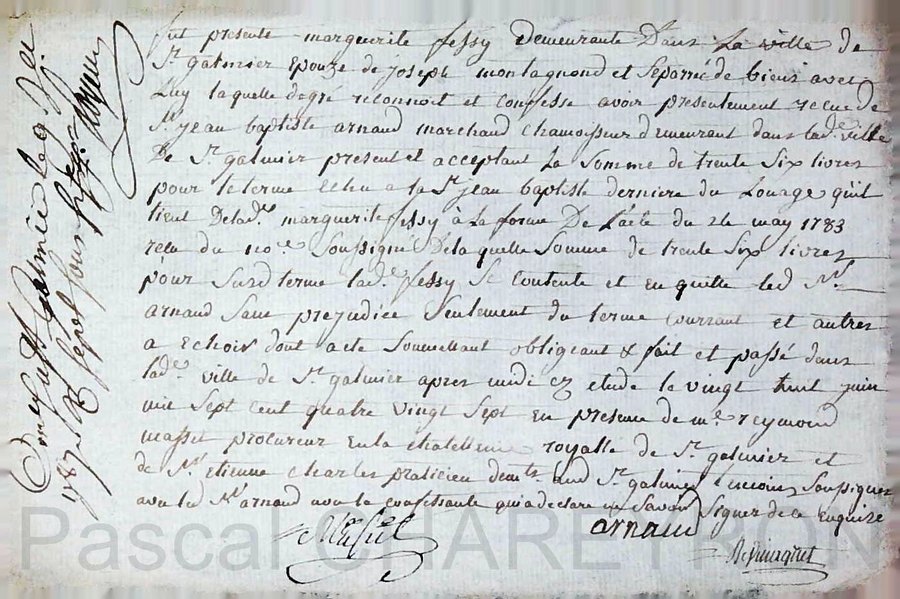 fut presente marguerite fessy Demeurante Dans La ville de
St. galmier Epouze de joseph montagnond et Separée de biens avec
Luy laquelle de gré reconnoit et confesse avoir presentement recue de
Sr. jean baptiste arnaud marchand Chamoiseur demeurant dans lade. ville
De St. galmier present et acceptant La Somme de trente Six livres
pour le terme Echeu a la St. jean baptiste derniere du Louage quil
tient De lade. marguerite fessy a La forme De L'acte du 24 may 1783
recu du noe. Soussigné De la quelle Somme de trente Six livres
pour Susd terme lade. fessy Se contente et en quitte led Sr.
arnaud Sans prejudice Seulement du terme Courrant et autres
a Echoir dont acte Soumettant obligeant & fait et passé dans
lade. ville de St. galmier apres midi ez etude le vingt huit juin
mil Sept cent quatre vingt Sept En presence de me. reymond
masset procureur En la chatellenie royalle de St. galmier et
de Sr. Etienne Charles praticien demts. aud St. galmier temoins Soussignes
avec led Sr. arnaud non la confessante qui a declaré ne Savoir Signer de ce Enquise
Masset
arnaud
Controllé a St galmier le
1787 Rt Sept Sous
Pascal CHAREYRON